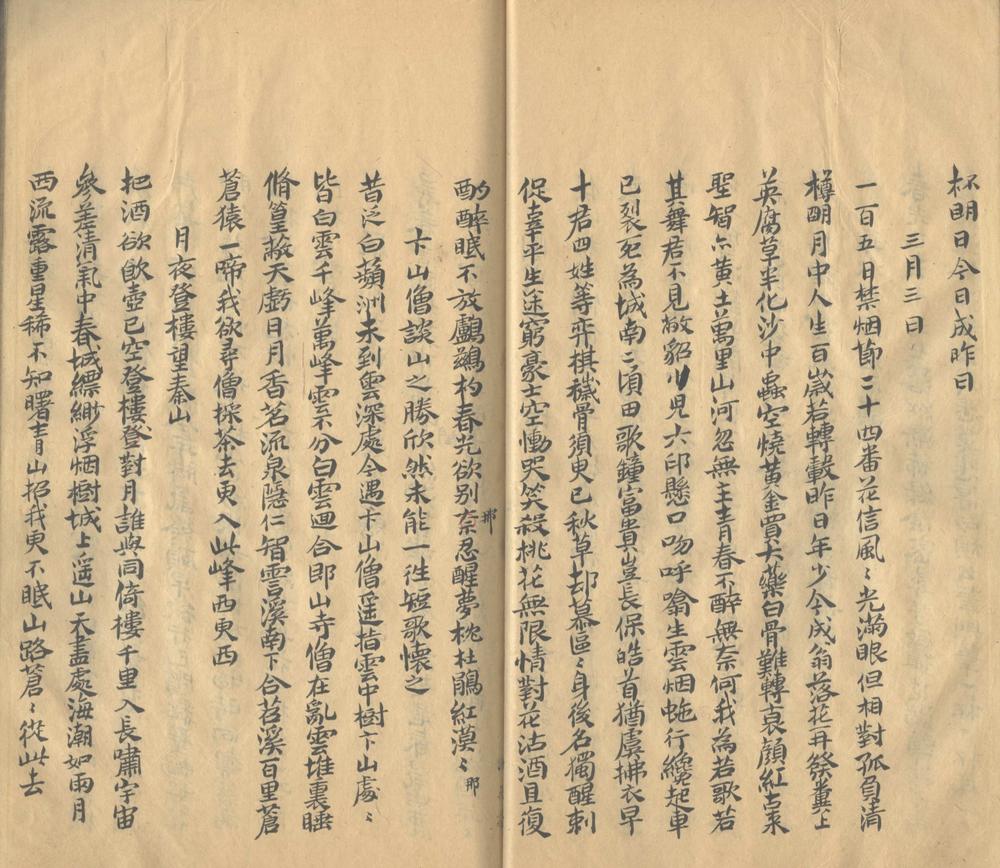 杯明日今日成昨日
三月三日
一百五日禁烟節二十四番花信風〻光滿眼但相對孤負清
樽明月中人生百歲若轉轂昨日年少今成翁落花再發糞上
英腐草半化沙中蟲空燒黃金買大藥白骨難轉衰顏紅古來
聖智亦黃土萬里山河忽無主青春不醉無奈何我為若歌若
其舞君不見敝貂少児六印懸口吻呼噏生雲烟虵行纔起車
已裂死為城南二頃田歌鐘富貴豈長保皓首猶虞拂衣早
十君四姓等弈棋穢骨須臾已秋草却慕區〻身後名獨醒刺
促辜平生途窮豪士空慟哭笑殺桃花無限情對花沽酒且復
酌醉眠不放鸕鷀杓春光欲別奈忍醒夢枕杜鵑紅漠〻
那
那
卞山僧談山之勝欣然未能一徃短歌懷之
昔泛白蘋洲未到雲深處今遇卞山僧遥指雲中樹卞山處〻
皆白雲千峰萬峰雲不分白雲迴合即山寺僧在亂雲堆裏睡
脩篁蔽天虧日月香茗流泉隱仁智雲溪南下合苕溪百里蒼
蒼猿一啼我欲尋僧採茶去更入此峰西更西
月夜登樓望秦山
把酒欲飲壺已空登樓登對月誰與同倚樓千里入長嘯宇宙
參差清氣中春城縹緲浮烟樹城上遥山天盡處海潮如雨月
西流露重星稀不知曙青山招我更不眠山路蒼〻從此去